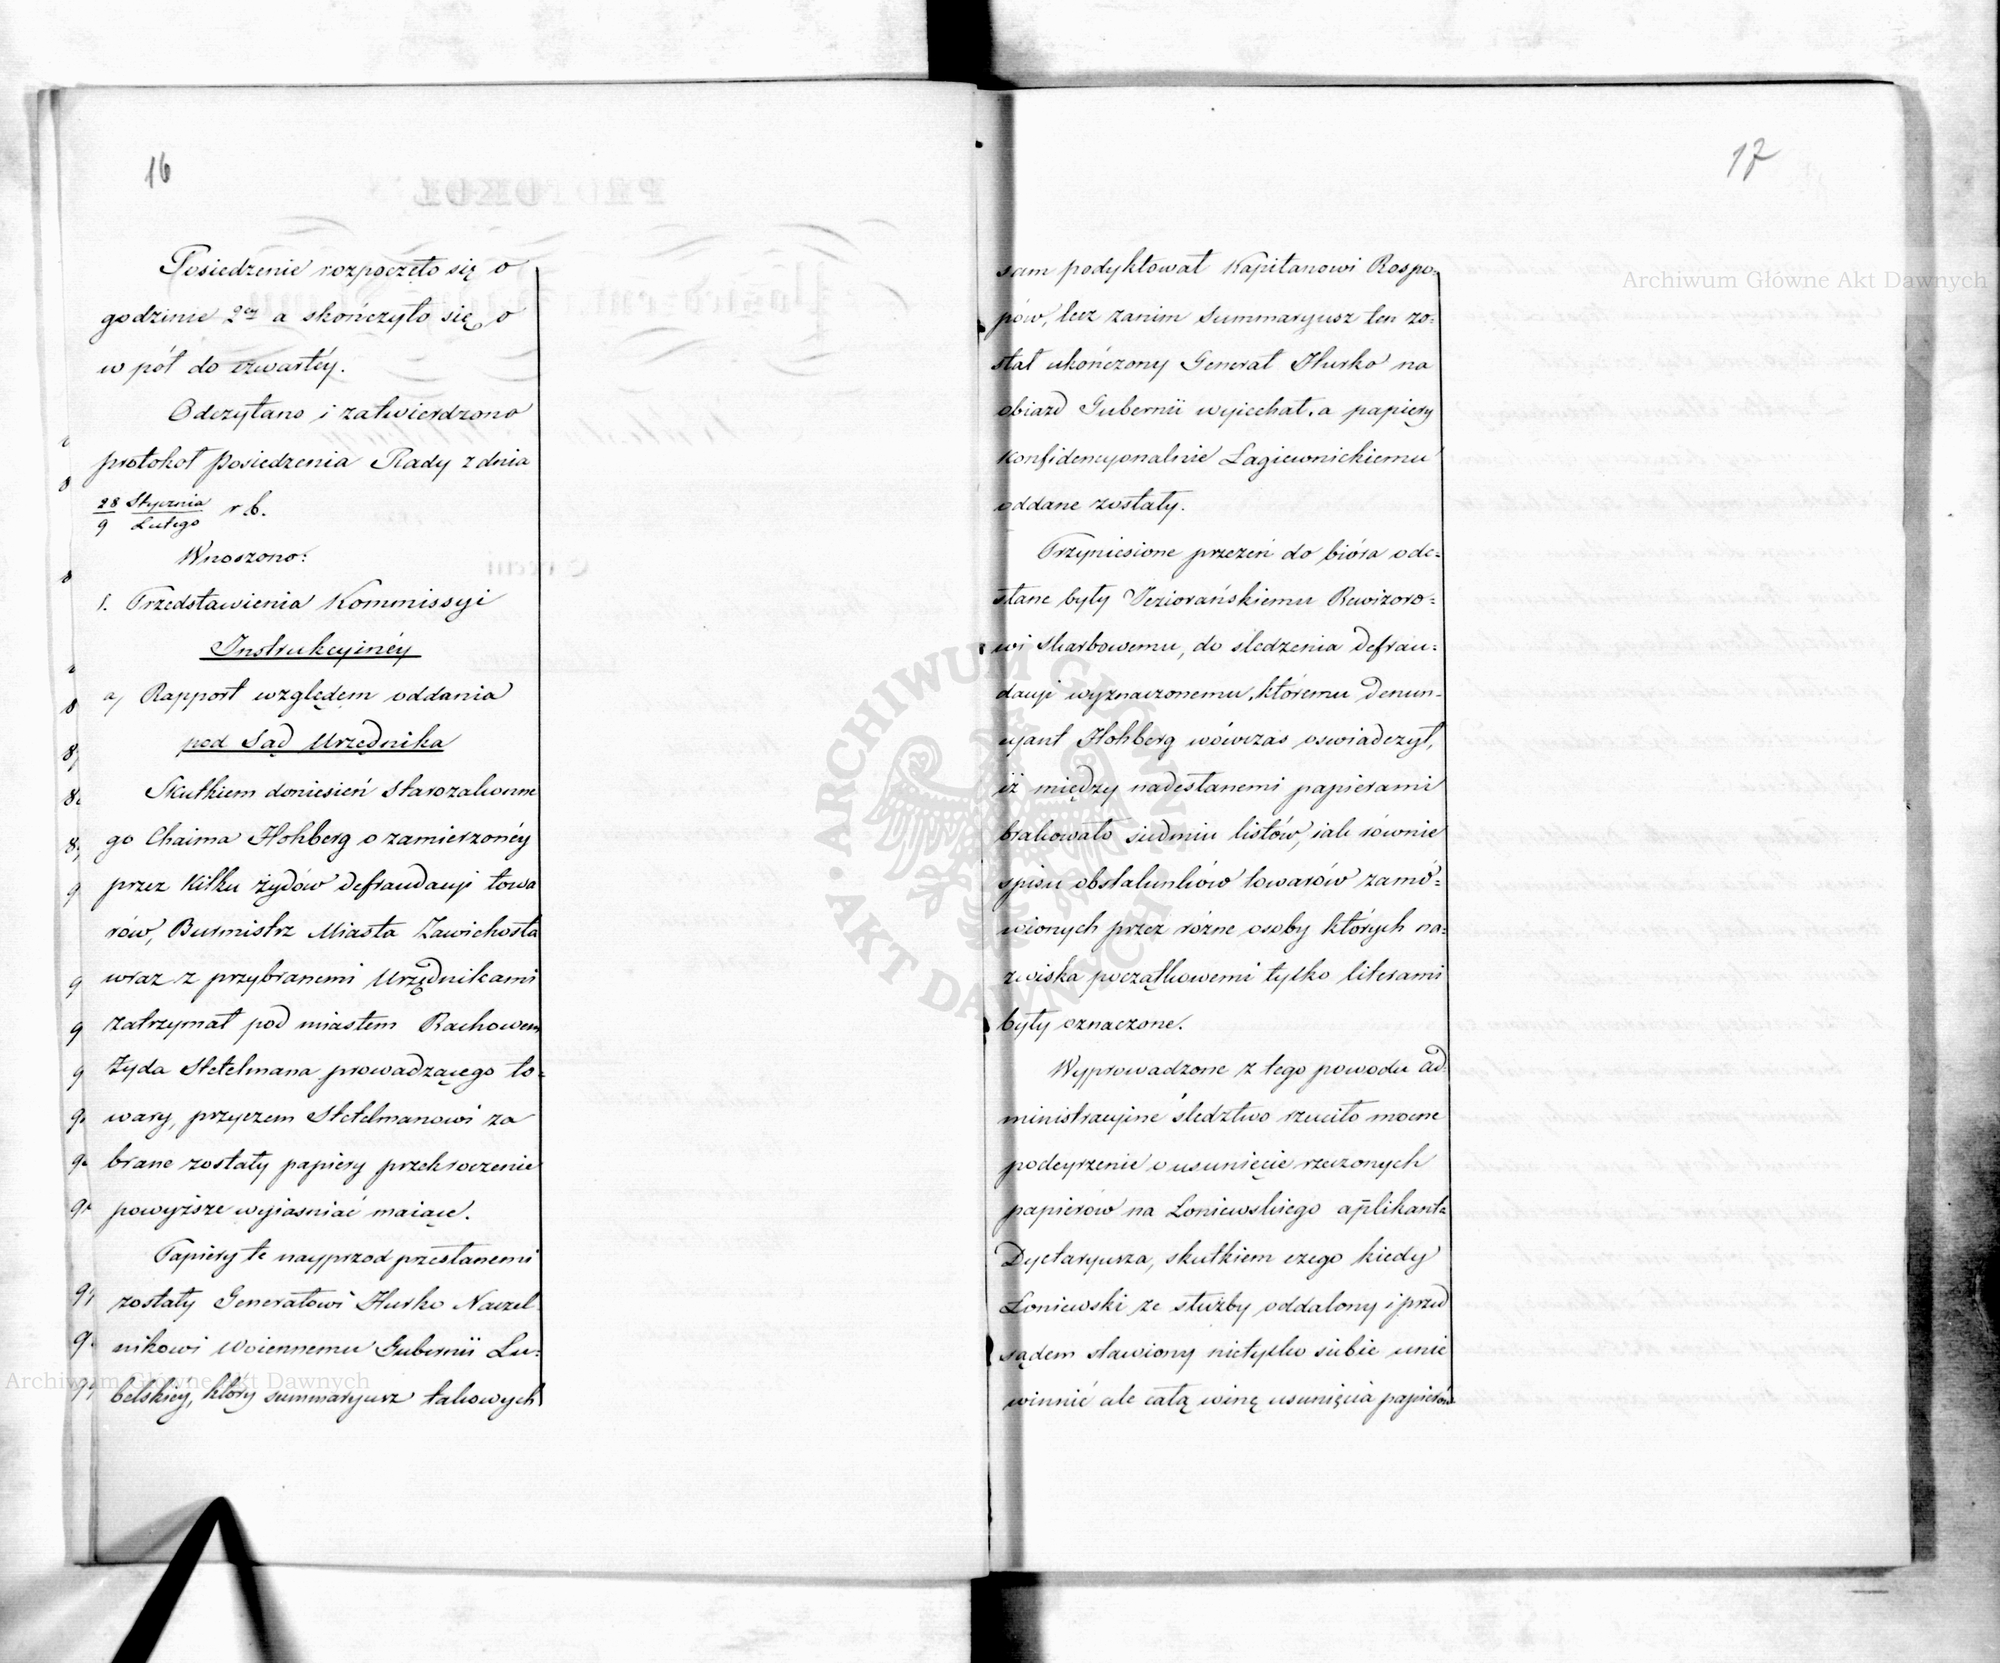 16
Posiedzenie rozpoczęło się o
godzinie 2ey a skończyło się o
w pół do czwartéy.
Odczytano i zatwierdzono
protokoł Posiedzenia Rady z dnia
28 Stycznia
9 Lutego r. b.
Wnoszono:
1. Przedstawienia Kommissyi
Instrukcyinéy
a) Rapport względem oddania
pod Sąd Urzędnika
Skutkiem doniesień Starozakonne
go Chaima Hohberg o zamierzonéy
przez kilku żydów defraudacyi towa
rów, Burmistrz Miasta Zawichosta
wraz z przybranemi Urzędnikami
zatrzymał pod miastem Rachowem
Żyda Stetelmana prowadzącego to-
wary, przyczem Stetelmanowi za
brane zostały papiery przekroczenie
powyższe wyiasniać maiące.
Papiery te nayprzod przesłanemi
zostały Generałowi Hurko Naczel
nikowi Woiennemu Gubernii Lu-
belskiey, który summaryusz takowych
17
sam podyktował Kapitanowi Rospo-
pów, lecz zanim Summaryusz ten zo-
stał ukończony Generał Hurko na
obiazd Gubernii wyiechał, a papiery
konfidencyonalnie Łagiewnickiemu
oddane zostały.
Przyniesione przezeń do bióra ode-
słane były Jeziorańskiemu Rewizoro-
wi Skarbowemu, do sledzenia defrau-
dacyi wyznaczonemu, któremu denun-
cyant Hohberg wówczas oswiadczył,
iż między nadesłanemi papierami
brakowało siedmiu listów, iak równie
spisu obstalunków towarów zamó-
wionych przez rózne osoby których na-
zwiska początkowemi tylko literami
były oznaczone.
Wyprowadzone z tego powodu ad
ministracyine śledztwo rzuciło mocne
podeyrzenie o usunięcie rzeczonych
papierów na Łoniewskiego aplikanta
Dyetaryusza, skutkiem czego kiedy
Łoniewski ze służby oddalony i przed
sądem stawiony nietylko siebie unie
winnić ale całą winę usunięcia papierów
Archiwum Główne Akt Dawnych
Archiwum Główne Akt Dawnych
ARCHIWUM GŁÓWNE · AKT DAWNYCH ·